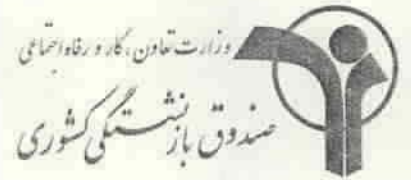 وزارت تعاون، کار و رفاه اجتماعی
صندوق بازنشستگی کشوری